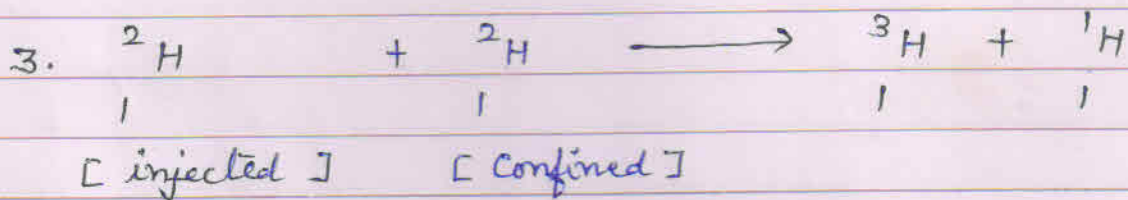 3. ²H + ²H ⟶ ³H + ¹H
1 1 1 1
[ injected ] [ Confined ]